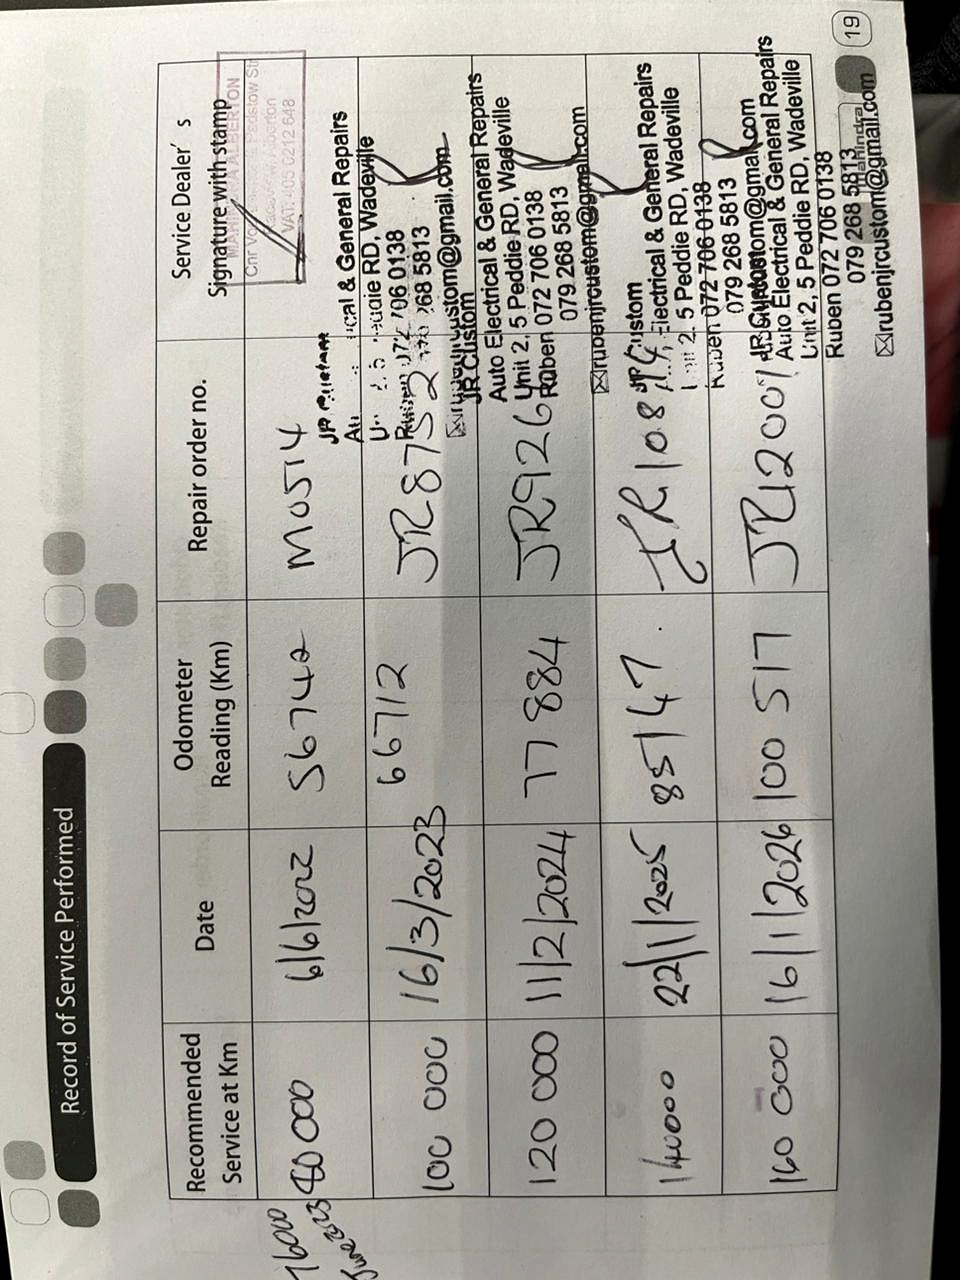 Record of Service Performed
Recommended
Service at Km
Date
Odometer
Reading (Km)
Repair order no.
Service Dealer's
Signature with stamp
76000
June 2023
80 000
6/6/2022
56742
M0514
VAT: 405 0212 648
100 000
16/3/2023
66712
JR8752
ical & General Repairs
RD, Wadeville
706 0138
268 5813
120 000
11/2/2024
77 884
JR926
JR Custom
Auto Electrical & General Repairs
Unit 2, 5 Peddie RD, Wadeville
Ruben 072 706 0138
079 268 5813
rubenjrcustom@gmail.com
140000
22/1/2025
85147
JR10874
JR Custom
Electrical & General Repairs
2, 5 Peddie RD, Wadeville
Ruben 072 706 0138
079 268 5813
160 000
16/1/2026
100 517
JR12001
JR Custom
Auto Electrical & General Repairs
Unit 2, 5 Peddie RD, Wadeville
Ruben 072 706 0138
079 268 5813
rubenjrcustom@gmail.com
Mahindra
19